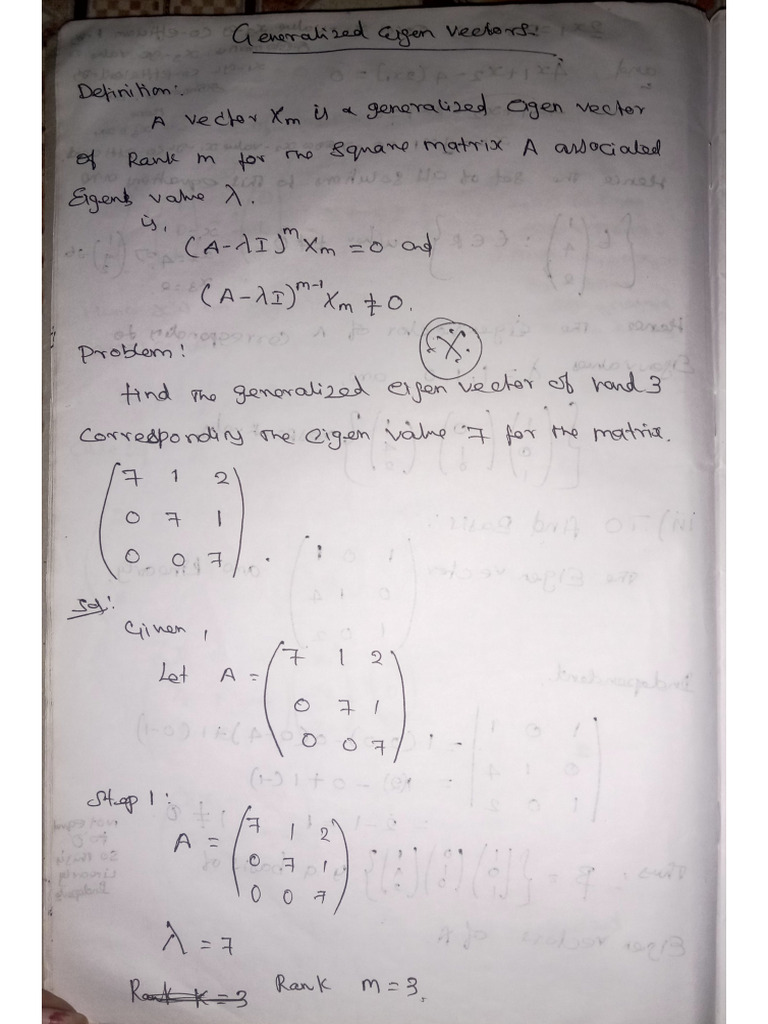 Generalized Eigen Vectors:
Definition:
A vector Xm is a generalized eigen vector
of Rank m for the square matrix A associated
Eigen value λ.
is,
(A-λI)^m Xm = 0 and
(A-λI)^m-1 Xm ≠ 0.
X
Problem:
find the generalized eigen vector of rand 3
Corresponding the eigen value 7 for the matrix.
7 1 2
0 7 1
0 0 7 .
Sol:
Given,
Let A = 7 1 2
0 7 1
0 0 7 .
Step 1:
A = 7 1 2
0 7 1
0 0 7
λ = 7
Rank K = 3 Rank m = 3.